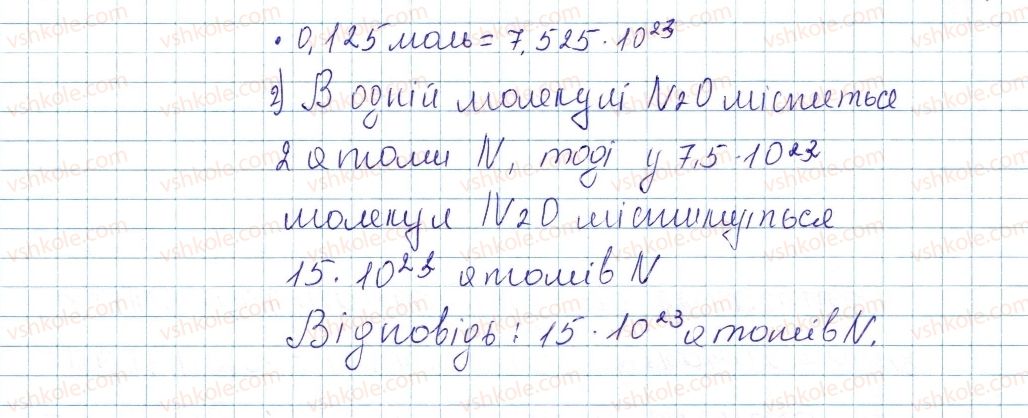 · 0,125 моль = 7,525 · 10²³
2) В одній молекулі N2O міститься
2 атоми N, тоді у 7,5 · 10²³
молекул N2O міститиметься
15 · 10²³ атомів N
Відповідь: 15 · 10²³ атомів N.